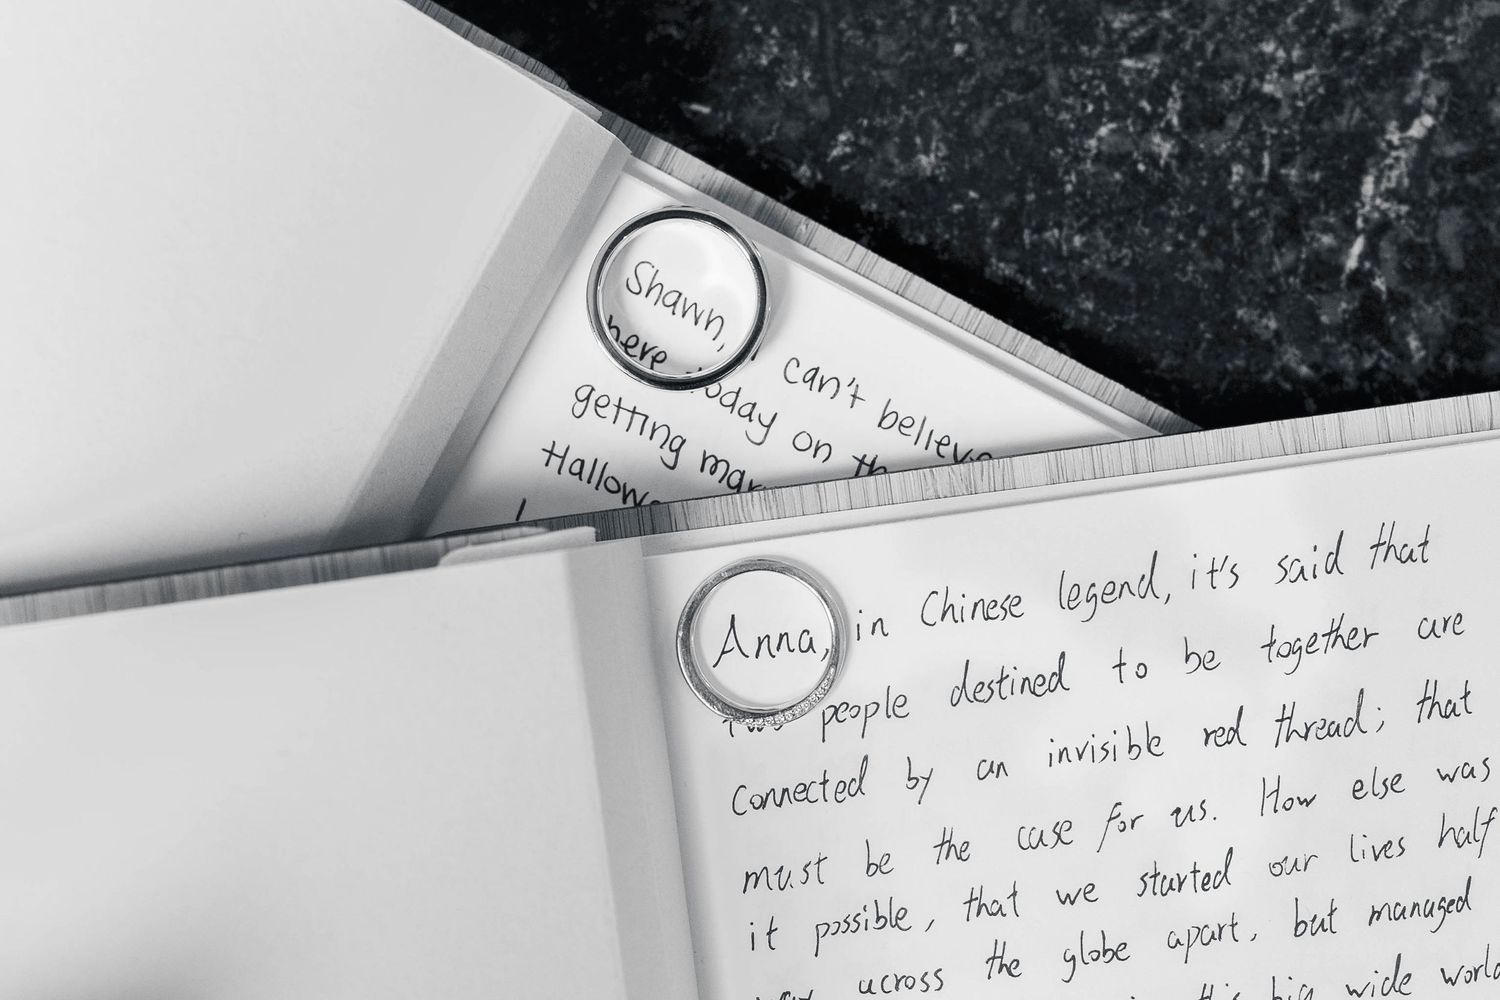 Shawn, I can't believe
here today on the
getting mar
Hallowe
Anna, in Chinese legend, it's said that
two people destined to be together are
connected by an invisible red thread; that
must be the case for us. How else was
it possible, that we started our lives half
across the globe apart, but managed
this big wide world